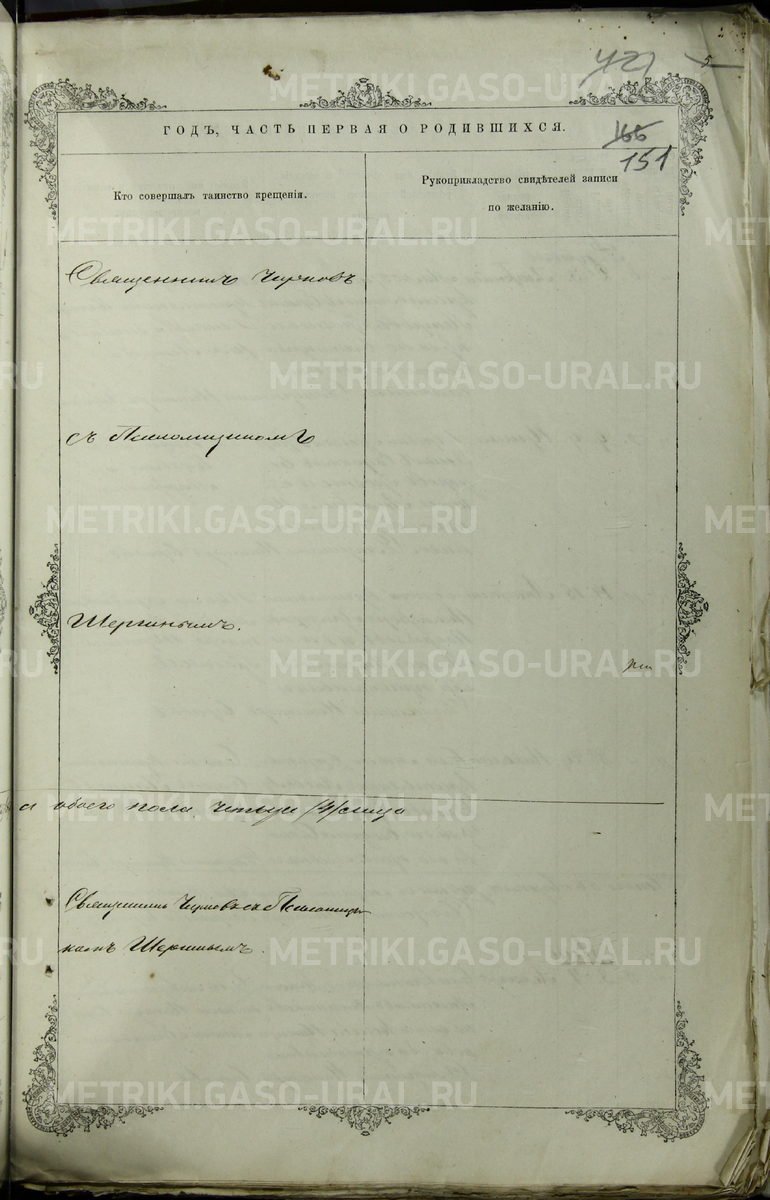 5
421
ГОДЪ, ЧАСТЬ ПЕРВАЯ О РОДИВШИХСЯ.
166
151
Кто совершалъ таинство крещенія.
Рукоприкладство свидѣтелей записи
по желанію.
Священникъ Чирковъ
съ Псаломщикомъ
Шергинымъ.
а обоего пола четыре /4/ лица
Священникъ Чирковъ съ Псаломщи
комъ Шергинымъ.
METRIKI.GASO-URAL.RU